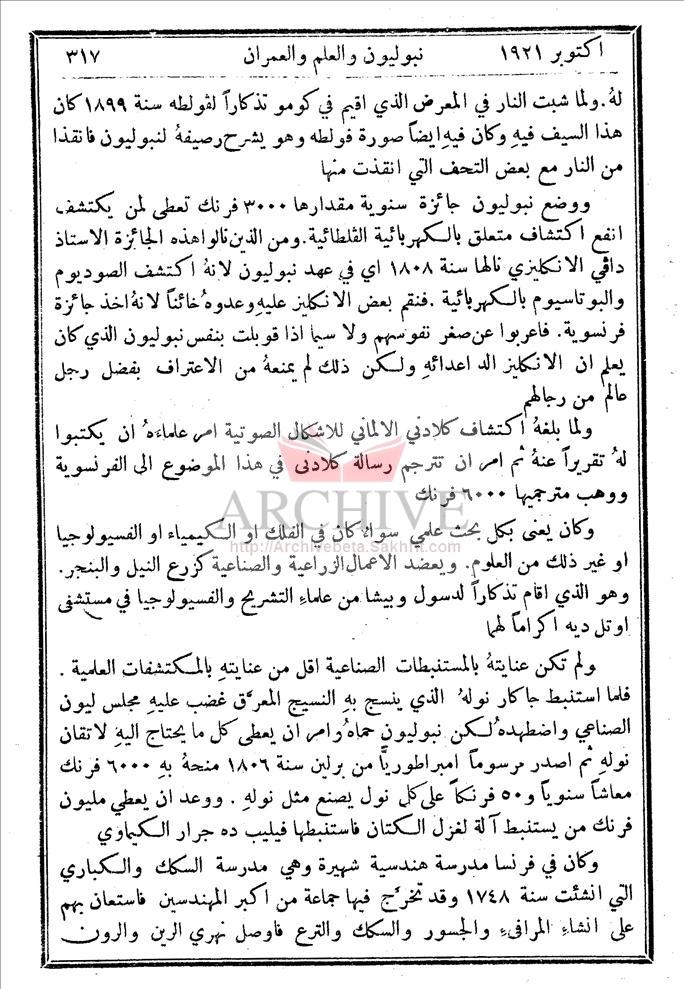 اكتوبر ١٩٢١ نبوليون والعلم والعمران ٣١٧
لهُ. ولما شبت النار في المعرض الذي اقيم في كومو تذكاراً لڤولطه سنة ١٨٩٩ كان
هذا السيف فيهِ وكان فيهِ ايضاً صورة ڤولطه وهو يشرح رصيفهُ لنبوليون فانقذا
من النار مع بعض التحف التي انقذت منها
ووضع نبوليون جائزة سنوية مقدارها ٣٠٠٠ فرنك تعطى لمن يكتشف
انفع اكتشاف متعلق بالكهربائية الڤلطائية. ومن الذين نالوا هذه الجائزة الاستاذ
داڤي الانكليزي نالها سنة ١٨٠٨ اي في عهد نبوليون لانهُ اكتشف الصوديوم
والبوتاسيوم بالكهربائية. فنقم بعض الانكليز عليهِ وعدوهُ خائناً لانهُ اخذ جائزة
فرنسوية. فاعربوا عن صغر نفوسهم ولا سيما اذا قوبلت بنفس نبوليون الذي كان
يعلم ان الانكليز الد اعدائهِ ولكن ذلك لم يمنعهُ من الاعتراف بفضل رجل
عالم من رجالهم
ولما بلغهُ اكتشاف كلادني الالماني للاشكال الصوتية امر علماءَهُ ان يكتبوا
لهُ تقريراً عنهُ ثم امر ان تترجم رسالة كلادني في هذا الموضوع الى الفرنسوية
ووهب مترجميها ٦٠٠٠ فرنك
ARCHIVE
http://Archivebeta.Sakhrit.com
وكان يعنى بكل بحث علمي سوالا كان في الفلك او الكيمياء او الفسيولوجيا
او غير ذلك من العلوم. ويعضد الاعمال الزراعية والصناعية كزرع النيل والبنجر.
وهو الذي اقام تذكاراً لدسول وبيشا من علماءِ التشريح والفسيولوجيا في مستشفى
اوتل ديه اكراماً لهما
ولم تكن عنايتهُ بالمستنبطات الصناعية اقل من عنايتهِ بالمكتشفات العلمية.
فلما استنبط جاكار نولهُ الذي ينسج بهِ النسيج المعرَّق غضب عليهِ مجلس ليون
الصناعي واضطهدهُ لكن نبوليون حماهُ وامر ان يعطى كل ما يحتاج اليهِ لاتقان
نولهِ ثم اصدر مرسوماً امبراطوريًّا من برلين سنة ١٨٠٦ منحهُ بهِ ٦٠٠٠ فرنك
معاشاً سنوياً و٥٠ فرنكاً على كل نول يصنع مثل نولهِ. ووعد ان يعطي مليون
فرنك من يستنبط آلة لغزل الكتان فاستنبطها فيليب ده جرار الكيماوي
وكان في فرنسا مدرسة هندسية شهيرة وهي مدرسة السكك والكباري
التي انشئت سنة ١٧٤٨ وقد تخرَّج فيها جماعة من اكبر المهندسين فاستعان بهم
على انشاءِ المرافىءِ والجسور والسكك والترع فاوصل نهري الرين والرون